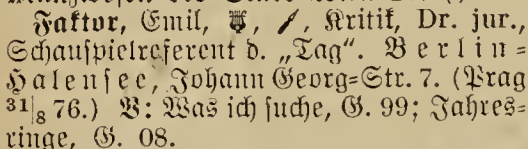 Faktor, Emil, Kritik, Dr. jur.,
Schauspielreferent d. „Tag“. Berlin=
Halensee, Johann Georg=Str. 7. (Prag
31|8 76.) V: Was ich suche, G. 99; Jahres=
ringe, G. 08.